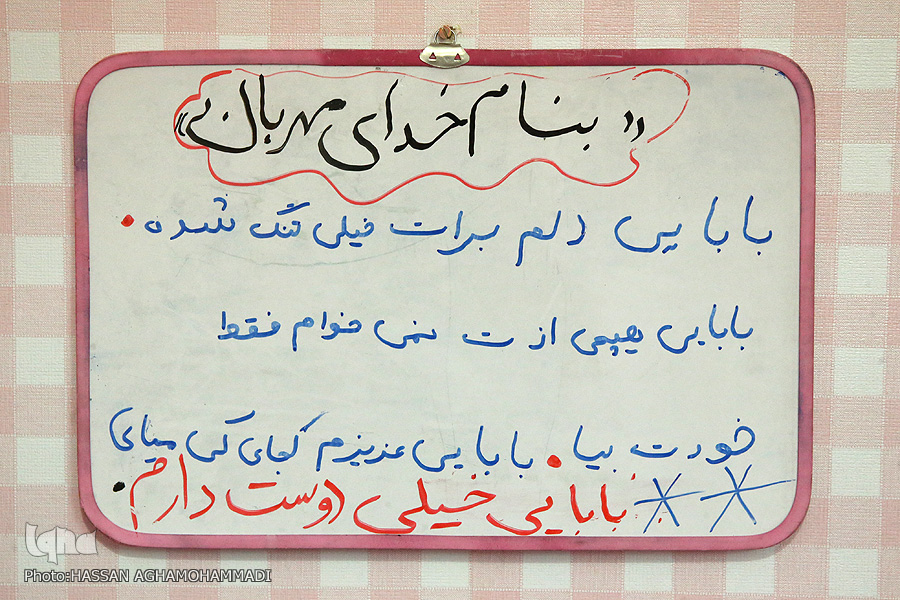 « بنام خدای مهربان »
بابایی دلم برات خیلی تنگ شده.
بابایی هیچی ازت نمی خوام فقط
خودت بیا. بابایی عزیزم کجای کی میای
بابایی خیلی دوست دارم.
iqna
Photo:HASSAN AGHAMOHAMMADI